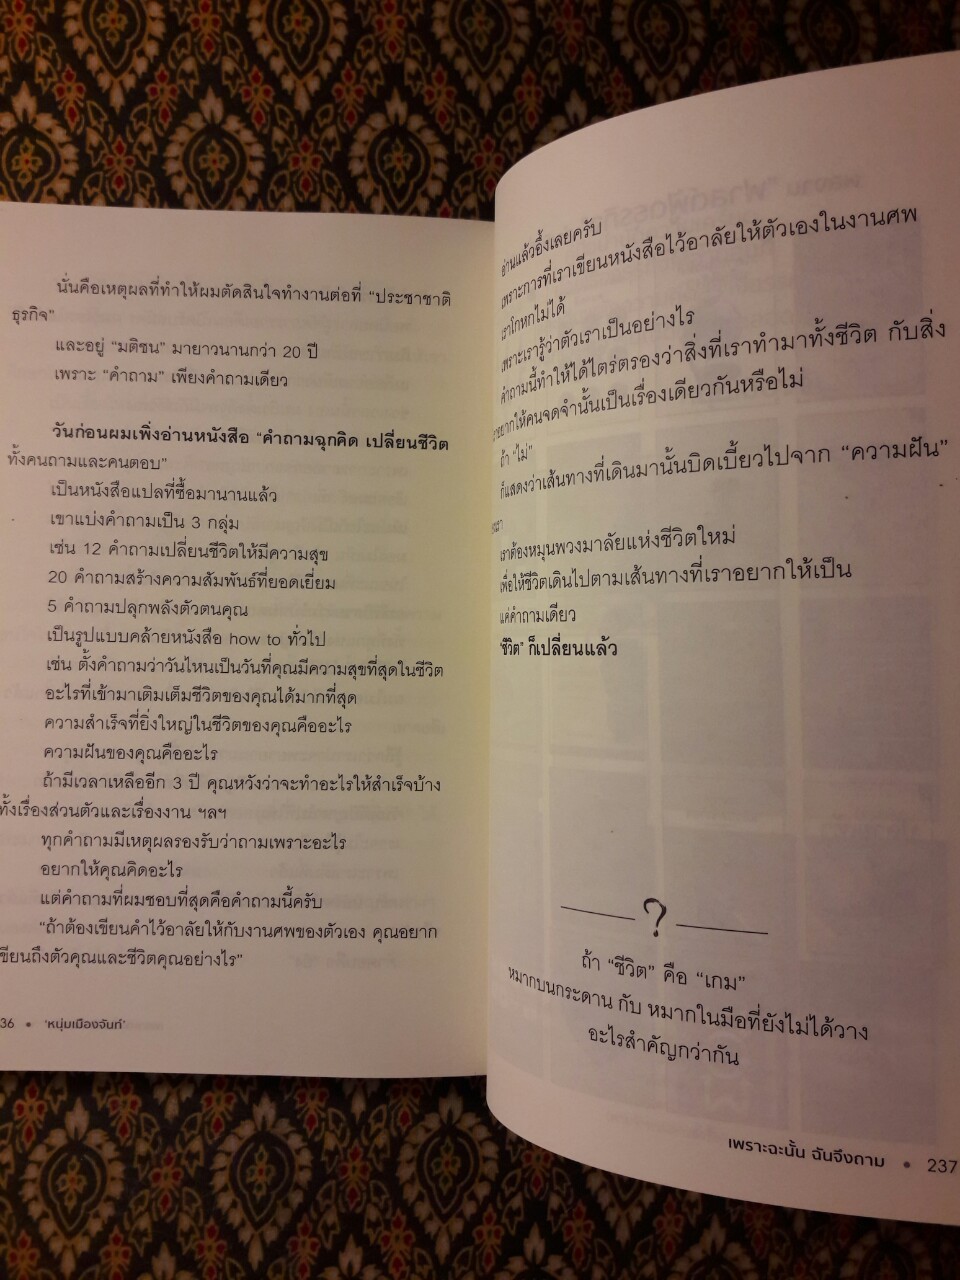 นั่นคือเหตุผลที่ทำให้ผมตัดสินใจทำงานต่อที่ “ประชาชาติ
ธุรกิจ”
และอยู่ “มติชน” มายาวนานกว่า 20 ปี
เพราะ “คำถาม” เพียงคำถามเดียว
วันก่อนผมเพิ่งอ่านหนังสือ “คำถามฉุกคิด เปลี่ยนชีวิต
ทั้งคนถามและคนตอบ”
เป็นหนังสือแปลที่ซื้อมานานแล้ว
เขาแบ่งคำถามเป็น 3 กลุ่ม
เช่น 12 คำถามเปลี่ยนชีวิตให้มีความสุข
20 คำถามสร้างความสัมพันธ์ที่ยอดเยี่ยม
5 คำถามปลุกพลังตัวตนคุณ
เป็นรูปแบบคล้ายหนังสือ how to ทั่วไป
เช่น ตั้งคำถามว่าวันไหนเป็นวันที่คุณมีความสุขที่สุดในชีวิต
อะไรที่เข้ามาเติมเต็มชีวิตของคุณได้มากที่สุด
ความสำเร็จที่ยิ่งใหญ่ในชีวิตของคุณคืออะไร
ความฝันของคุณคืออะไร
ถ้ามีเวลาเหลืออีก 3 ปี คุณหวังว่าจะทำอะไรให้สำเร็จบ้าง
ทั้งเรื่องส่วนตัวและเรื่องงาน ฯลฯ
ทุกคำถามมีเหตุผลรองรับว่าถามเพราะอะไร
อยากให้คุณคิดอะไร
แต่คำถามที่ผมชอบที่สุดคือคำถามนี้ครับ
“ถ้าต้องเขียนคำไว้อาลัยให้กับงานศพของตัวเอง คุณอยาก
เขียนถึงตัวคุณและชีวิตคุณอย่างไร”
36 • ‘หนุ่มเมืองจันท์’
อ่านแล้วอึ้งเลยครับ
เพราะการที่เราเขียนหนังสือไว้อาลัยให้ตัวเองในงานศพ
เราโกหกไม่ได้
เพราะเรารู้ว่าตัวเราเป็นอย่างไร
คำถามนี้ทำให้ได้ไตร่ตรองว่าสิ่งที่เราทำมาทั้งชีวิต กับสิ่ง
อยากให้คนจดจำนั้นเป็นเรื่องเดียวกันหรือไม่
ถ้า “ไม่”
ก็แสดงว่าเส้นทางที่เดินมานั้นบิดเบี้ยวไปจาก “ความฝัน”
เราต้องหมุนพวงมาลัยแห่งชีวิตใหม่
เพื่อให้ชีวิตเดินไปตามเส้นทางที่เราอยากให้เป็น
แค่คำถามเดียว
“ชีวิต” ก็เปลี่ยนแล้ว
?
ถ้า “ชีวิต” คือ “เกม”
หมากบนกระดาน กับ หมากในมือที่ยังไม่ได้วาง
อะไรสำคัญกว่ากัน
เพราะฉะนั้น ฉันจึงถาม • 237